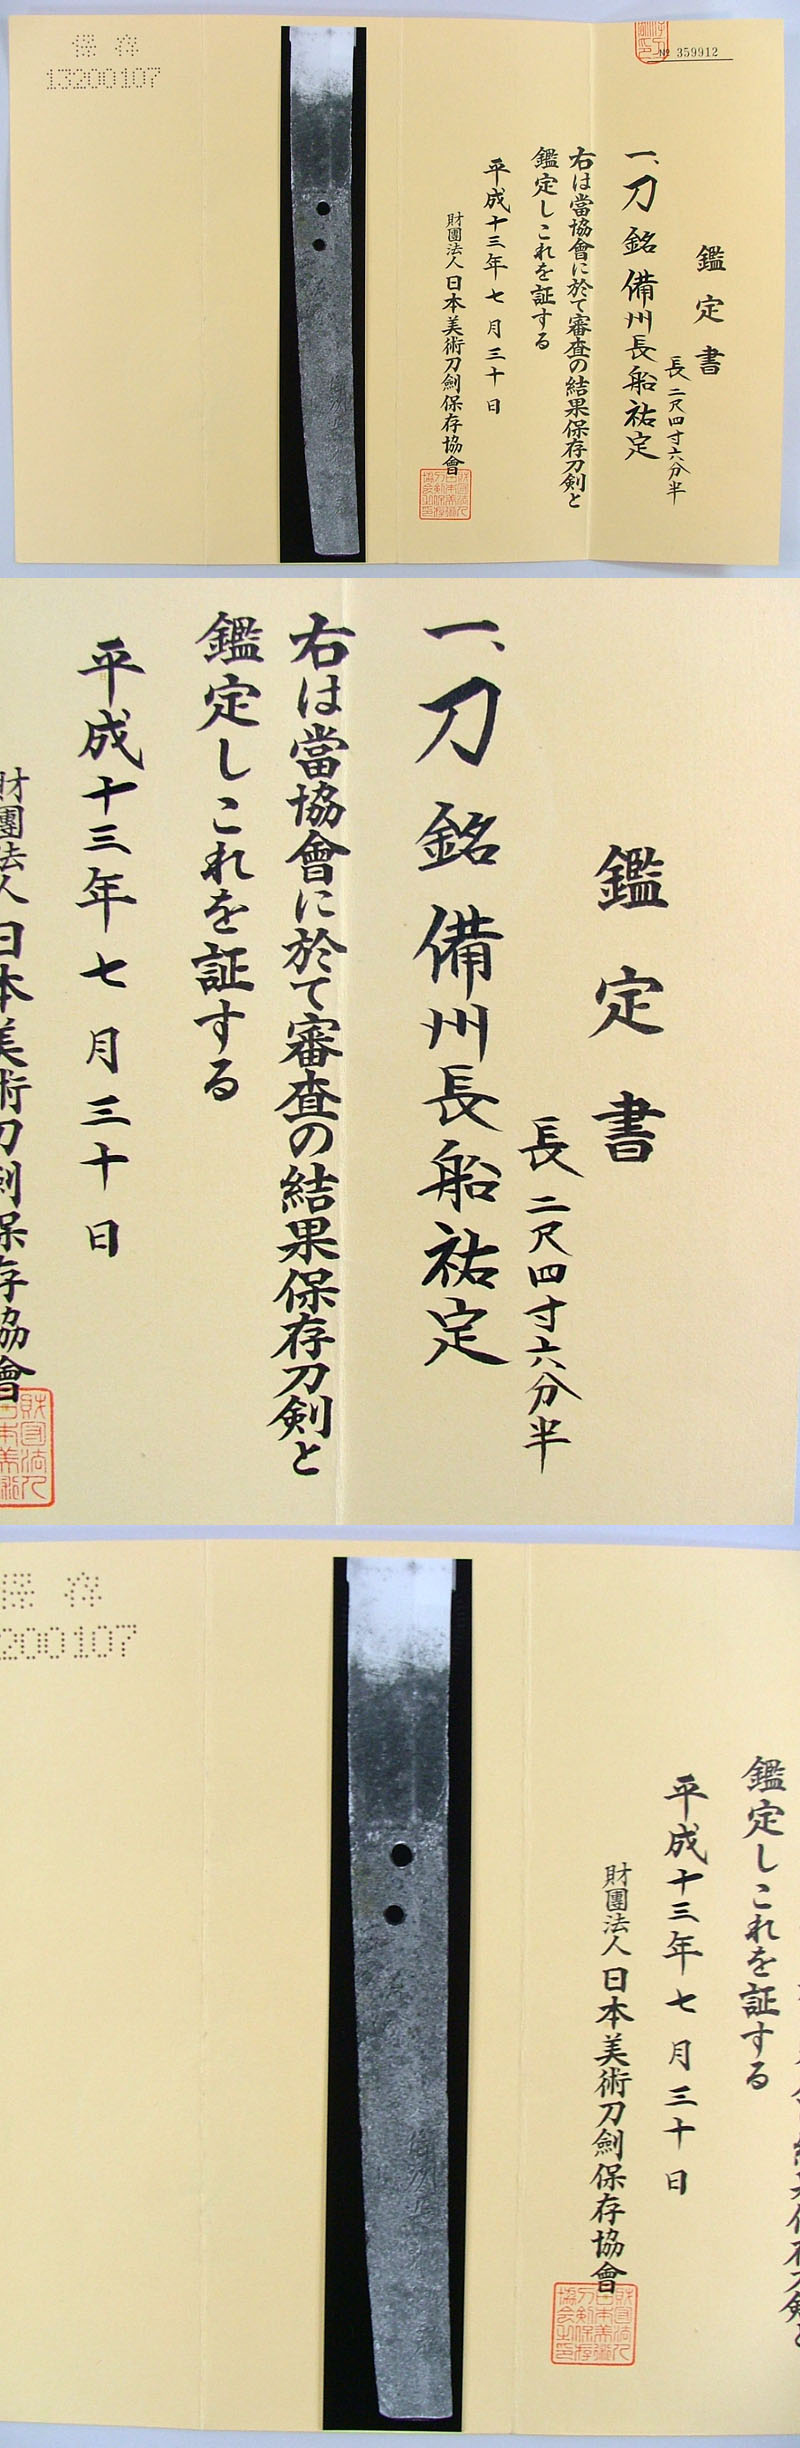 № 359912
鑑定書
長二尺四寸六分半
一、刀 銘 備州長船祐定
右は當協會に於て審査の結果保存刀剣と
鑑定しこれを証する
平成十三年七月三十日
財團法人日本美術刀劍保存協會
保存
13200107
鑑定書
長二尺四寸六分半
一、刀 銘 備州長船祐定
右は當協會に於て審査の結果保存刀剣と
鑑定しこれを証する
平成十三年七月三十日
財團法人日本美術刀劍保存協會
鑑定しこれを証する
平成十三年七月三十日
財團法人日本美術刀劍保存協會
保存
200107